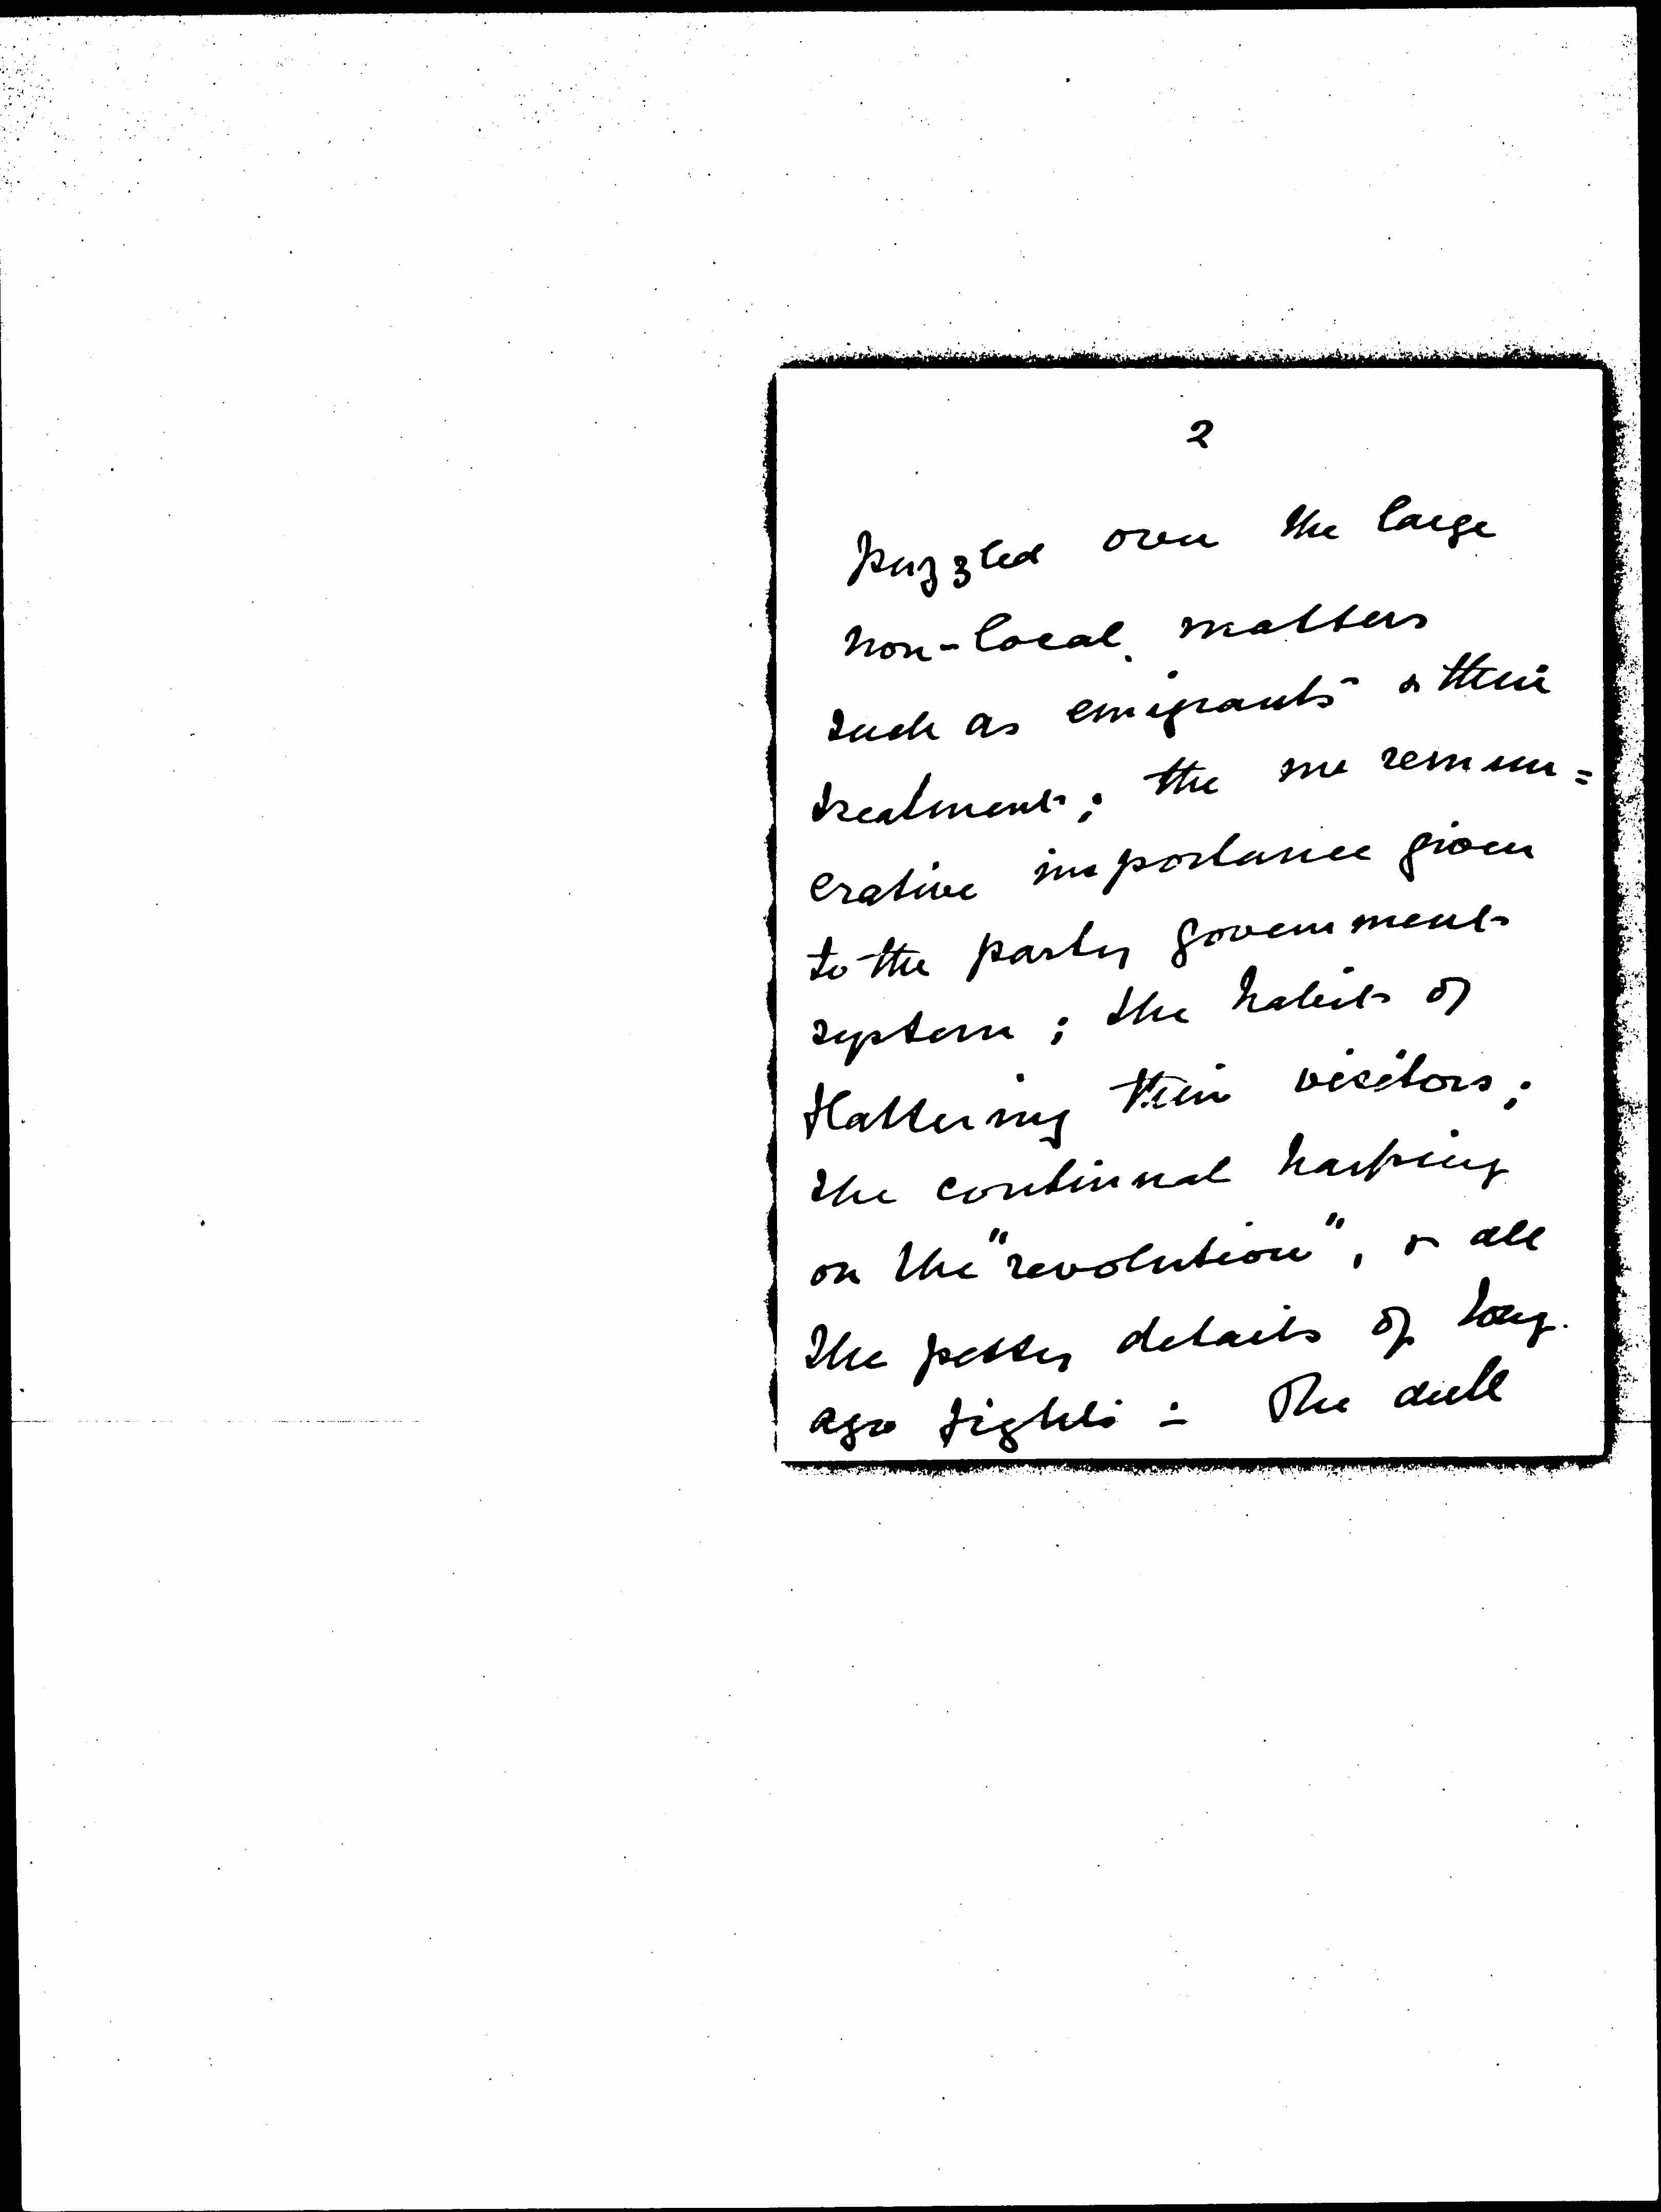 2
puzzled over the large
non-local matters
such as emigrants & their
treatment; the remun=
erative importance given
to the party government
system; the habits of
flattering their visitors;
the continual harping
on the "revolution", & all
the petty details of long.
ago fights - The dull